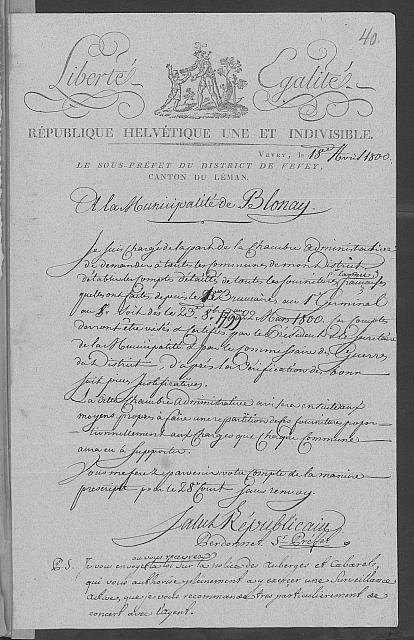 40.
Liberté, Egalité.
RÉPUBLIQUE HELVÉTIQUE UNE ET INDIVISIBLE.
VEVEY, le 18e Avril 1800.
LE SOUS-PRÉFET DU DISTRICT DE VEVEY,
CANTON DU LÉMAN.
A la Municipalité de Blonay.
Je suis Chargé de la part de la Chambre administrative
de demander à toutes les communes de mon District
d'établir les comptes détaillés de toutes les fournitures françaises
qu'elles ont faites depuis le 1er Brumaire, au 1er Germinal
au 8e soit dès le 23e 8bre 1799 Mars 1800. Ces Comptes
devront être visés & Certifiés par le Président & le Secrétaire
de la Municipalité & par le Commissaire des Guerres
du District, d'après la vérification des bons
soit pièces justificatives.
La dite Chambre administrative avisera ensuite aux
moyens propres à faire une répartition des fourniture propor-
tionnellement aux Charges que Chaque Commune
aura eu à supporter.
Vous me ferez parvenir votre Compte de la manière
prescripte pour le 28e Court sans renvoy.
Salut Républicain
Perdonnet, St Préfet
ou vous recevrez
P.S. Je vous envoye la loi sur la police des Auberges et Cabarets,
qui vous authorise pleinement a y exercer une Surveillance
active, que je vous recommande très particulièrement de
concert avec l'agent.